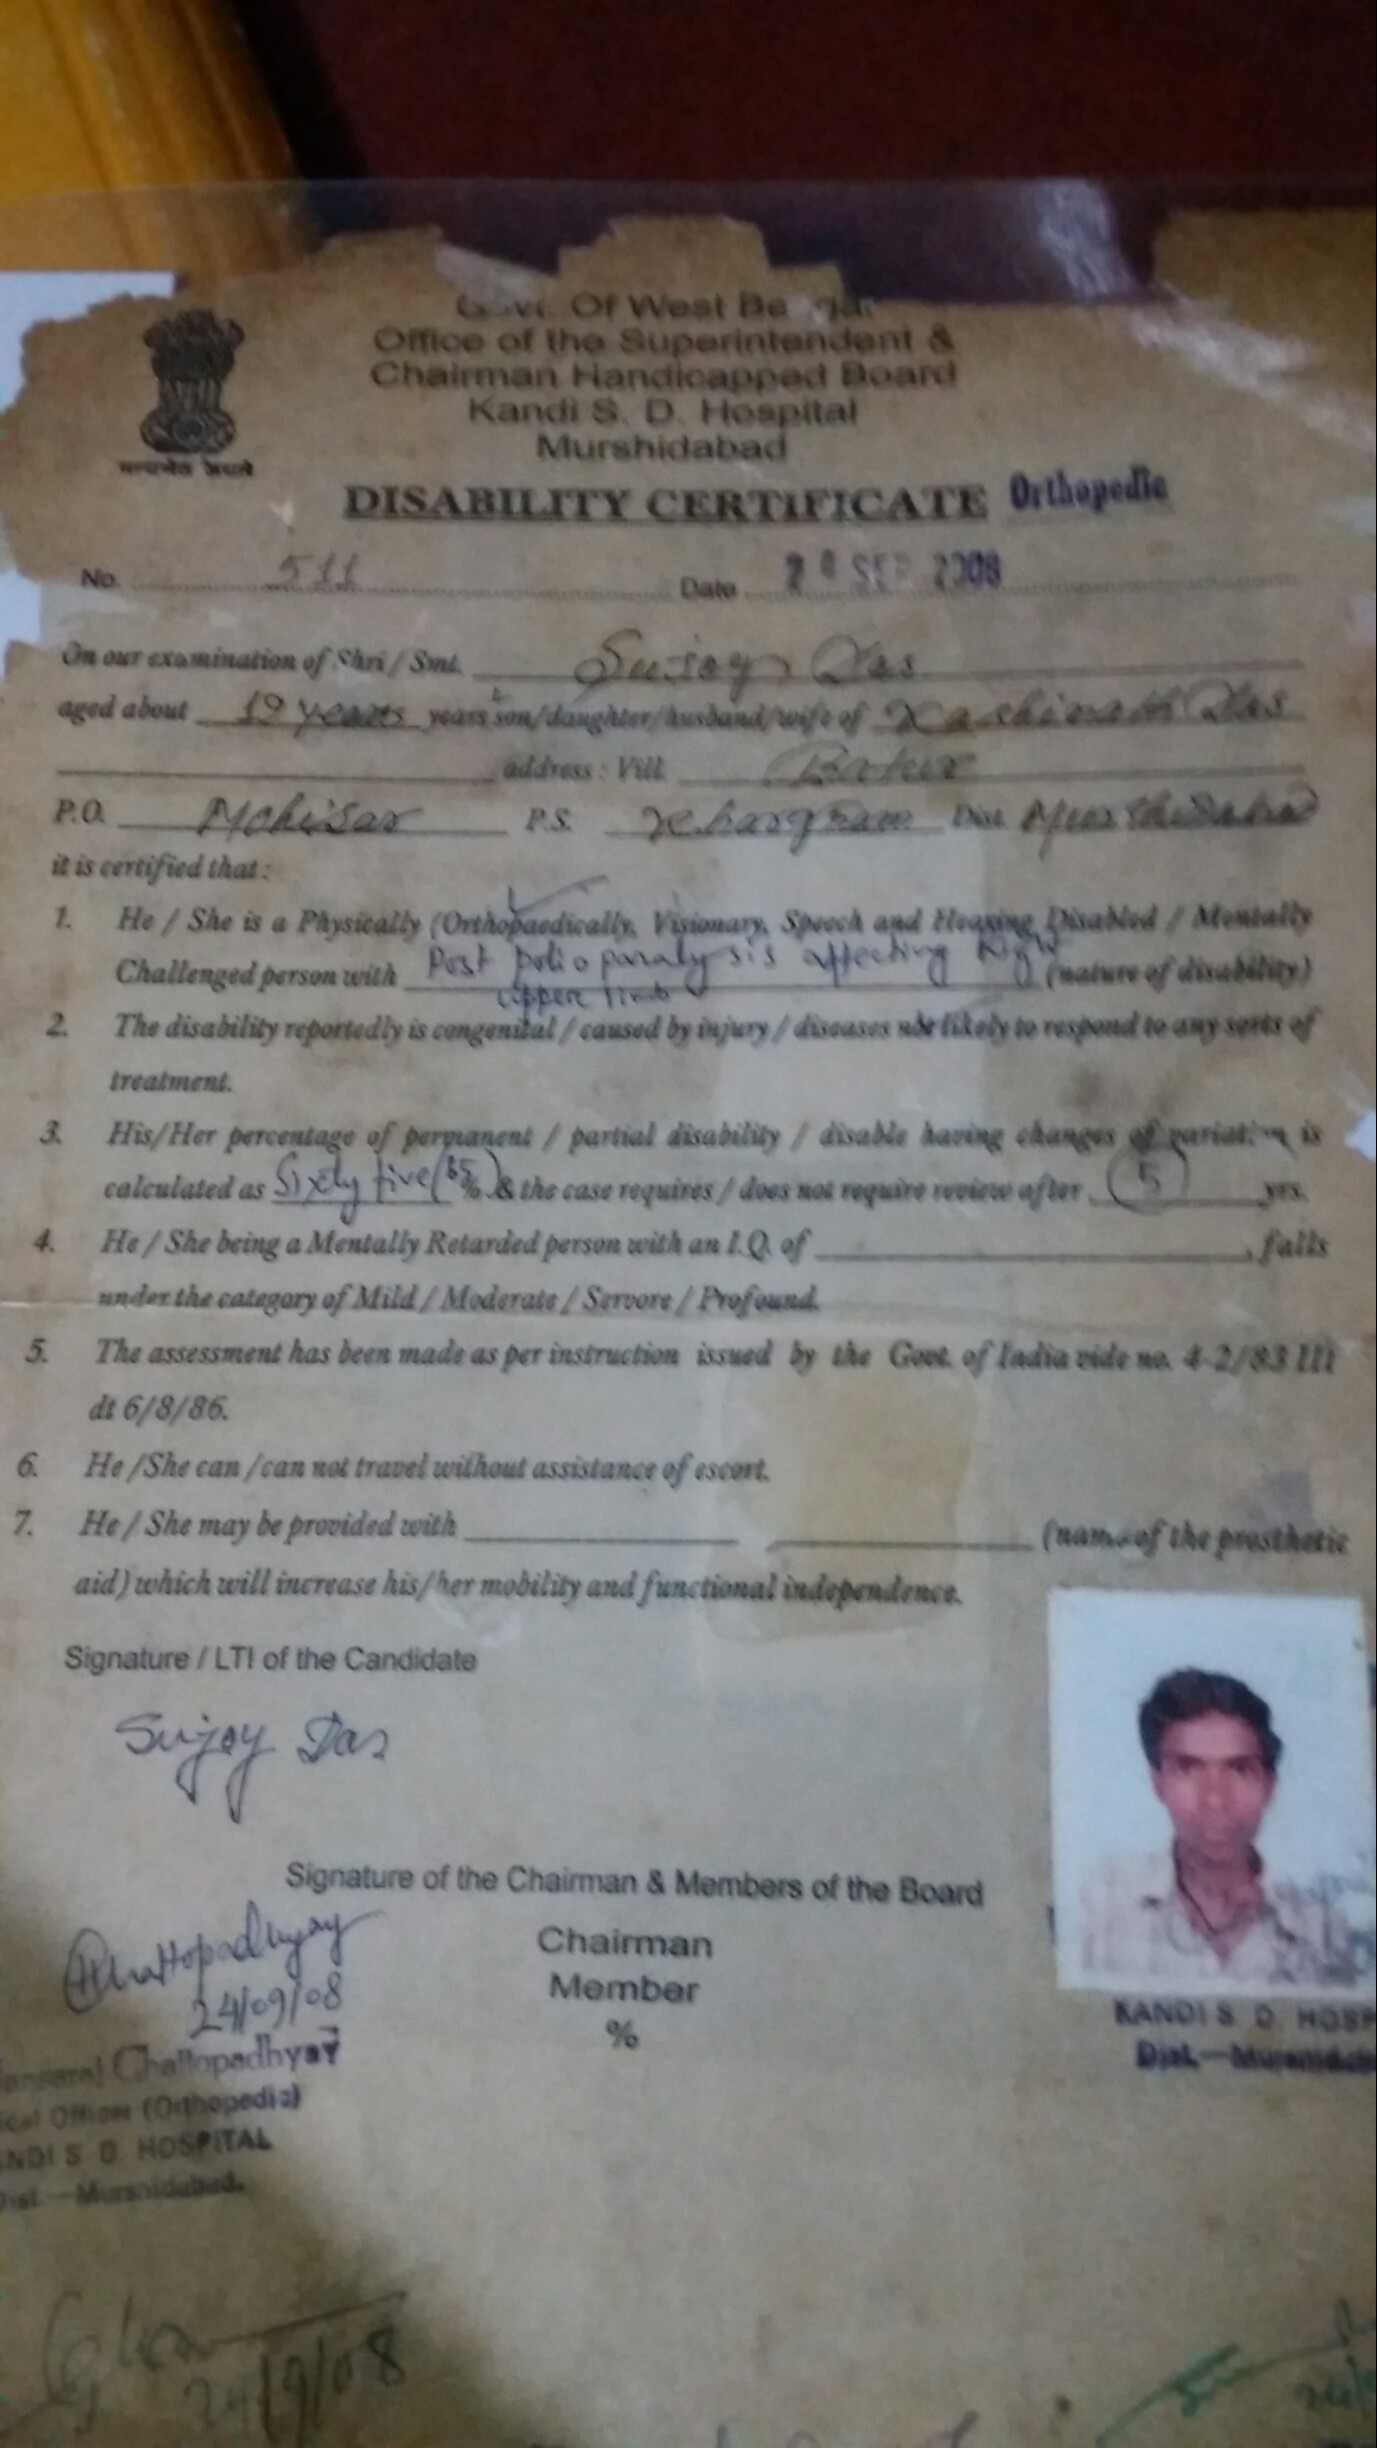 Govt. Of West Bengal
Office of the Superintendent &
Chairman Handicapped Board
Kandi S. D. Hospital
Murshidabad
सत्यमेव जयते
DISABILITY CERTIFICATE Orthopedic
No. 511 Date 24 SEP 2008
On our examination of Shri / Smt. Sujoy Das
aged about 19 years years son/daughter/husband/wife of Kashinath Das
address : Vill.
P.O. Mohisar P.S. Khargram Dist. Murshidabad
it is certified that :
1. He / She is a Physically (Orthopaedically, Visionary, Speech and Hearing Disabled / Mentally
Challenged person with Post polio paralysis affecting Right (nature of disability)
upper limb
2. The disability reportedly is congenital / caused by injury / diseases not likely to respond to any sorts of
treatment.
3. His/Her percentage of permanent / partial disability / disable having changes of variation is
calculated as Sixty five (65%) & the case requires / does not require review after 5 yrs.
4. He / She being a Mentally Retarded person with an I.Q. of , falls
under the category of Mild / Moderate / Servore / Profound.
5. The assessment has been made as per instruction issued by the Govt. of India vide no. 4-2/83 III
dt 6/8/86.
6. He /She can /can not travel without assistance of escort.
7. He / She may be provided with (name of the prosthetic
aid) which will increase his/her mobility and functional independence.
Signature / LTI of the Candidate
Sujoy Das
Signature of the Chairman & Members of the Board
Chattopadhyay
24/09/08
Chairman
Member
%
KANDI S. D. HOSP
Dist.—Murshidab
Chattopadhyay
ical Officer (Orthopedic)
ANDI S. D. HOSPITAL
Dist.—Murshidabad.
24/9/08